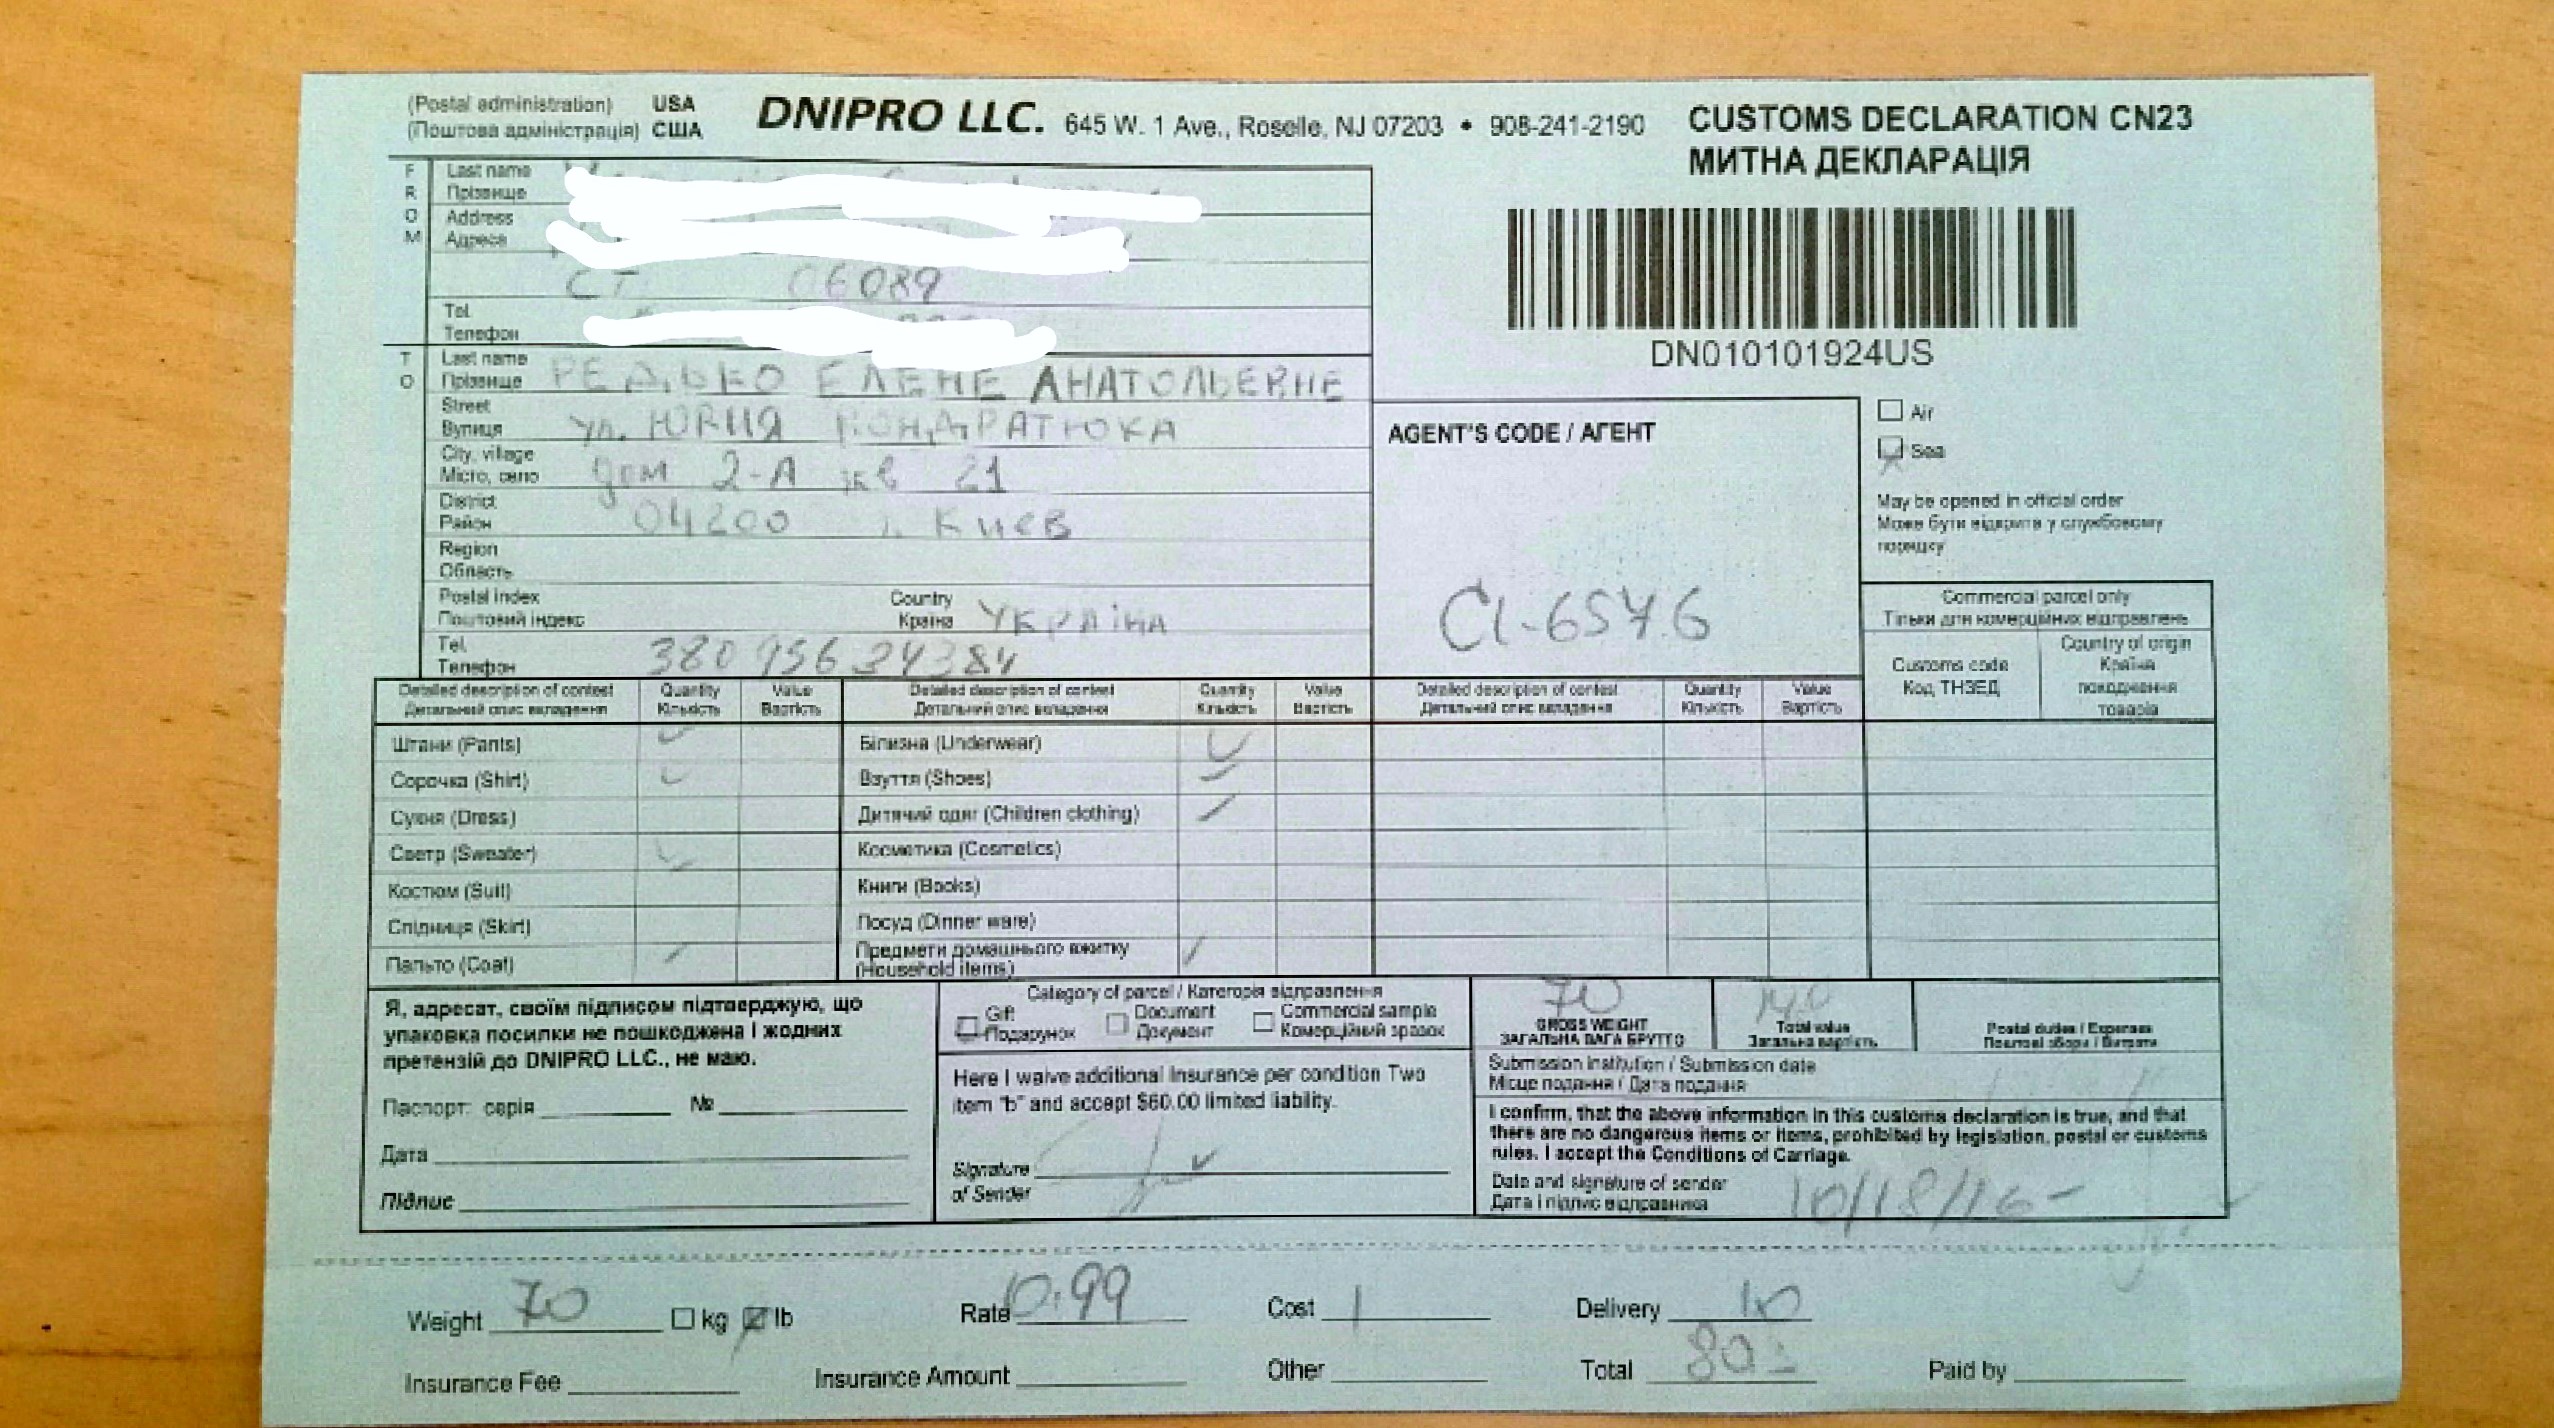 (Postal administration) USA
(Поштова адміністрація) США
DNIPRO LLC. 645 W. 1 Ave., Roselle, NJ 07203 • 908-241-2190
CUSTOMS DECLARATION CN23
МИТНА ДЕКЛАРАЦІЯ
DN010101924US
FROM
Last name
Прізвище
Address
Адреса
CT 06089
Tel.
Телефон
TO
Last name
Прізвище РЕДЬКО ЕЛЕНЕ АНАТОЛЬЕВНЕ
Street
Вулиця ул. ЮРИЯ КОНДРАТЮКА
City, village
Місто, село дом 2-А кв 21
District
Район 04200 г. Киев
Region
Область
Postal index
Поштовий індекс
Country
Країна УКРАїНА
Tel.
Телефон 380 956 34384
AGENT'S CODE / АГЕНТ
CL-6576
Air
Sea
May be opened in official order
Може бути відкрита у службовому
порядку
Commercial parcel only
Тільки для комерційних відправлень
Customs code
Код ТНЗЕД
Country of origin
Країна
походження
товарів
Detailed description of contest Quantity Value Detailed description of contest Quantity Value Detailed description of contest Quantity Value
Детальний опис вкладення Кількість Вартість Детальний опис вкладення Кількість Вартість Детальний опис вкладення Кількість Вартість
Штани (Pants) Білизна (Underwear)
Сорочка (Shirt) Взуття (Shoes)
Сукня (Dress) Дитячий одяг (Children clothing)
Светр (Sweater) Косметика (Cosmetics)
Костюм (Suit) Книги (Books)
Спідниця (Skirt) Посуд (Dinner ware)
Пальто (Coat) Предмети домашнього вжитку
(Household items)
Я, адресат, своїм підписом підтверджую, що
упаковка посилки не пошкоджена і жодних
претензій до DNIPRO LLC., не маю.
Паспорт: серія № 
Дата
Підпис
Category of parcel / Категорія відправлення
Gift Document Commercial sample
Подарунок Документ Комерційний зразок
Here I waive additional insurance per condition Two
item "b" and accept $60.00 limited liability.
Signature
of Sender
70
GROSS WEIGHT
ЗАГАЛЬНА ВАГА БРУТТО
Total value
Загальна вартість
Postal duties / Expenses
Поштові збори / Витрати
Submission institution / Submission date
Місце подання / Дата подання
I confirm, that the above information in this customs declaration is true, and that
there are no dangerous items or items, prohibited by legislation, postal or customs
rules. I accept the Conditions of Carriage.
Date and signature of sender
Дата і підпис відправника 10/18/16
Weight 70 kg lb Rate 0.99 Cost Delivery 10
Insurance Fee Insurance Amount Other Total 80 Paid by